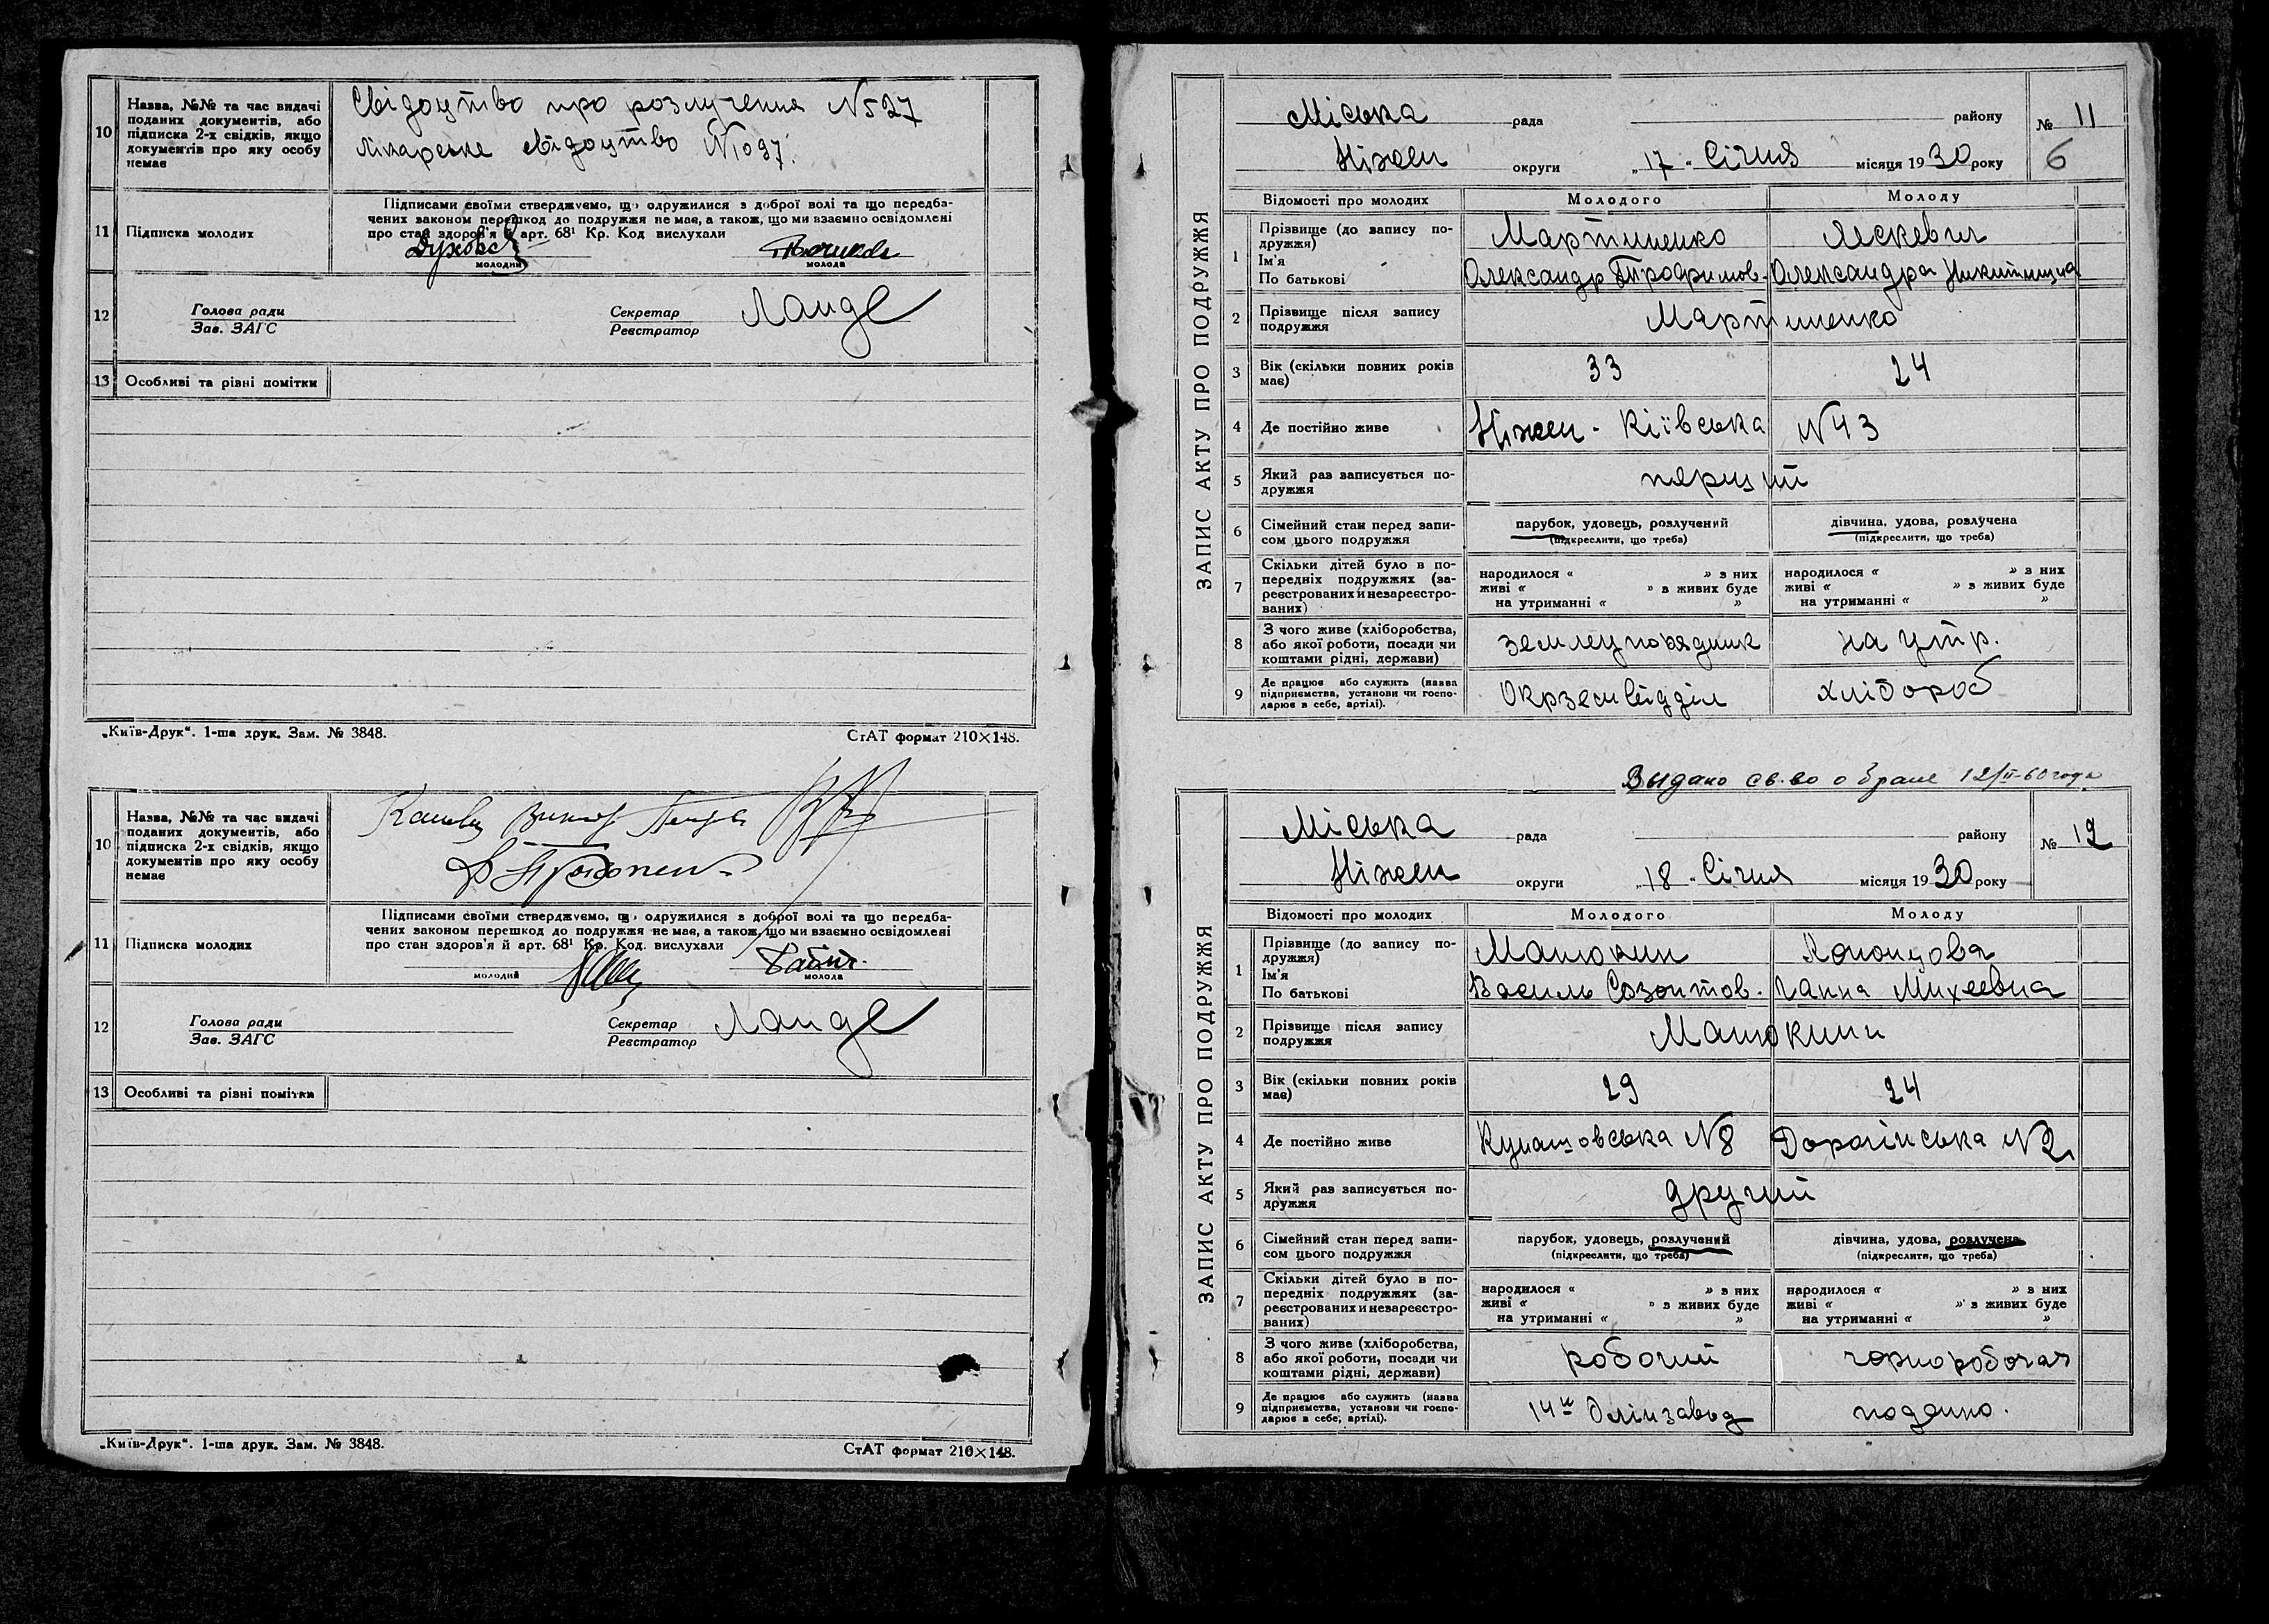 10
Назва, №№ та час видачі
поданих документів, або
підписка 2-х свідків, якщо
документів про яку особу
немає
Свідоцтво про розлучення N527
лікарське свідоцтво N1097.
11
Підписка молодих
Підписами своїми стверджуємо, що одружилися з доброї волі та що передба-
чених законом перешкод до подружжя не має, а також, що ми взаємно освідомлені
про стан здоров'я й арт. 68¹ Кр. Код вислухали
молодий
молода
12
Голова ради
Зав. ЗАГС
Секретар
Реєстратор
Ланде
13
Особливі та різні помітки
„Київ-Друк“. 1-ша друк. Зам. № 3848.
СтАТ формат 210×148.
10
Назва, №№ та час видачі
поданих документів, або
підписка 2-х свідків, якщо
документів про яку особу
немає
11
Підписка молодих
Підписами своїми стверджуємо, що одружилися з доброї волі та що передба-
чених законом перешкод до подружжя не має, а також, що ми взаємно освідомлені
про стан здоров'я й арт. 68¹ Кр. Код. вислухали
молодий
молода
12
Голова ради
Зав. ЗАГС
Секретар
Реєстратор
Ланде
13
Особливі та різні помітки
„Київ-Друк“. 1-ша друк. Зам. № 3848.
СтАТ формат 210×148.
ЗАПИС АКТУ ПРО ПОДРУЖЖЯ
Міська рада району № 11
Ніжен округи „17„ Січня місяця 1930 року
6
Відомості про молодих Молодого Молоду
1
Прізвище (до запису по-
дружжя)
Ім'я
По батькові
Мартиненко
Олександр Трофимов.
Яскевич
Олександра Никитишна
2
Прізвище після запису
подружжя
Мартиненко
3
Вік (скільки повних років
має)
33 24
4
Де постійно живе
Ніжен - Київська N43
5
Який раз записується по-
дружжя
перший
6
Сімейний стан перед запи-
сом цього подружжя
парубок, удовець, розлучений
(підкреслити, що треба)
дівчина, удова, розлучена
(підкреслити, що треба)
7
Скільки дітей було в по-
передніх подружжях (за-
реєстрованих и незареєстро-
ваних)
народилося « » з них
живі « » з живих буде
на утриманні « »
народилося « » з них
живі « » з живих буде
на утриманні « »
8
З чого живе (хліборобства,
або якої роботи, посади чи
коштами рідні, держави)
землеупорядник на утр.
9
Де працює або служить (назва
підприємства, установи чи госпо-
дарює в себе, артілі).
Окрземвідділ хлібороб
Выдано св-во о браке 12/II-60 года
ЗАПИС АКТУ ПРО ПОДРУЖЖЯ
Міська рада району № 12
Ніжен округи „18„ Січня місяця 1930 року
Відомості про молодих Молодого Молоду
1
Прізвище (до запису по-
дружжя)
Ім'я
По батькові
Манюкин
Василь Созонтов.
Кононцова
Ганна Михеевна
2
Прізвище після запису
подружжя
Манюкини
3
Вік (скільки повних років
має)
29 24
4
Де постійно живе
Кунашовська N8 Дорогінська N2
5
Який раз записується по-
дружжя
другий
6
Сімейний стан перед запи-
сом цього подружжя
парубок, удовець, розлучений
(підкреслити, що треба)
дівчина, удова, розлучена
(підкреслити, що треба)
7
Скільки дітей було в по-
передніх подружжях (за-
реєстрованих и незареєстро-
ваних)
народилося « » з них
живі « » з живих буде
на утриманні « »
народилося « » з них
живі « » з живих буде
на утриманні « »
8
З чого живе (хліборобства,
або якої роботи, посади чи
коштами рідні, держави)
робочий чорноробочая
9
Де працює або служить (назва
підприємства, установи чи госпо-
дарює в себе, артілі).
14й Олійзавод поденно.